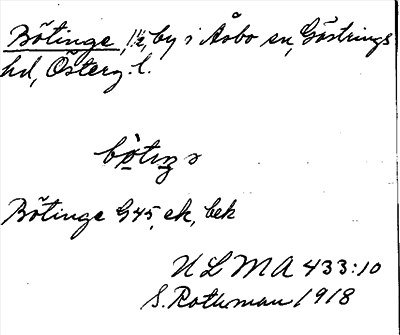 Bötinge, 1½, by i Åsbo sn, Göstrings
hd, Österg. l.
Bötinge G45, ek, bek
ULMA 433:10
S. Rothman 1918